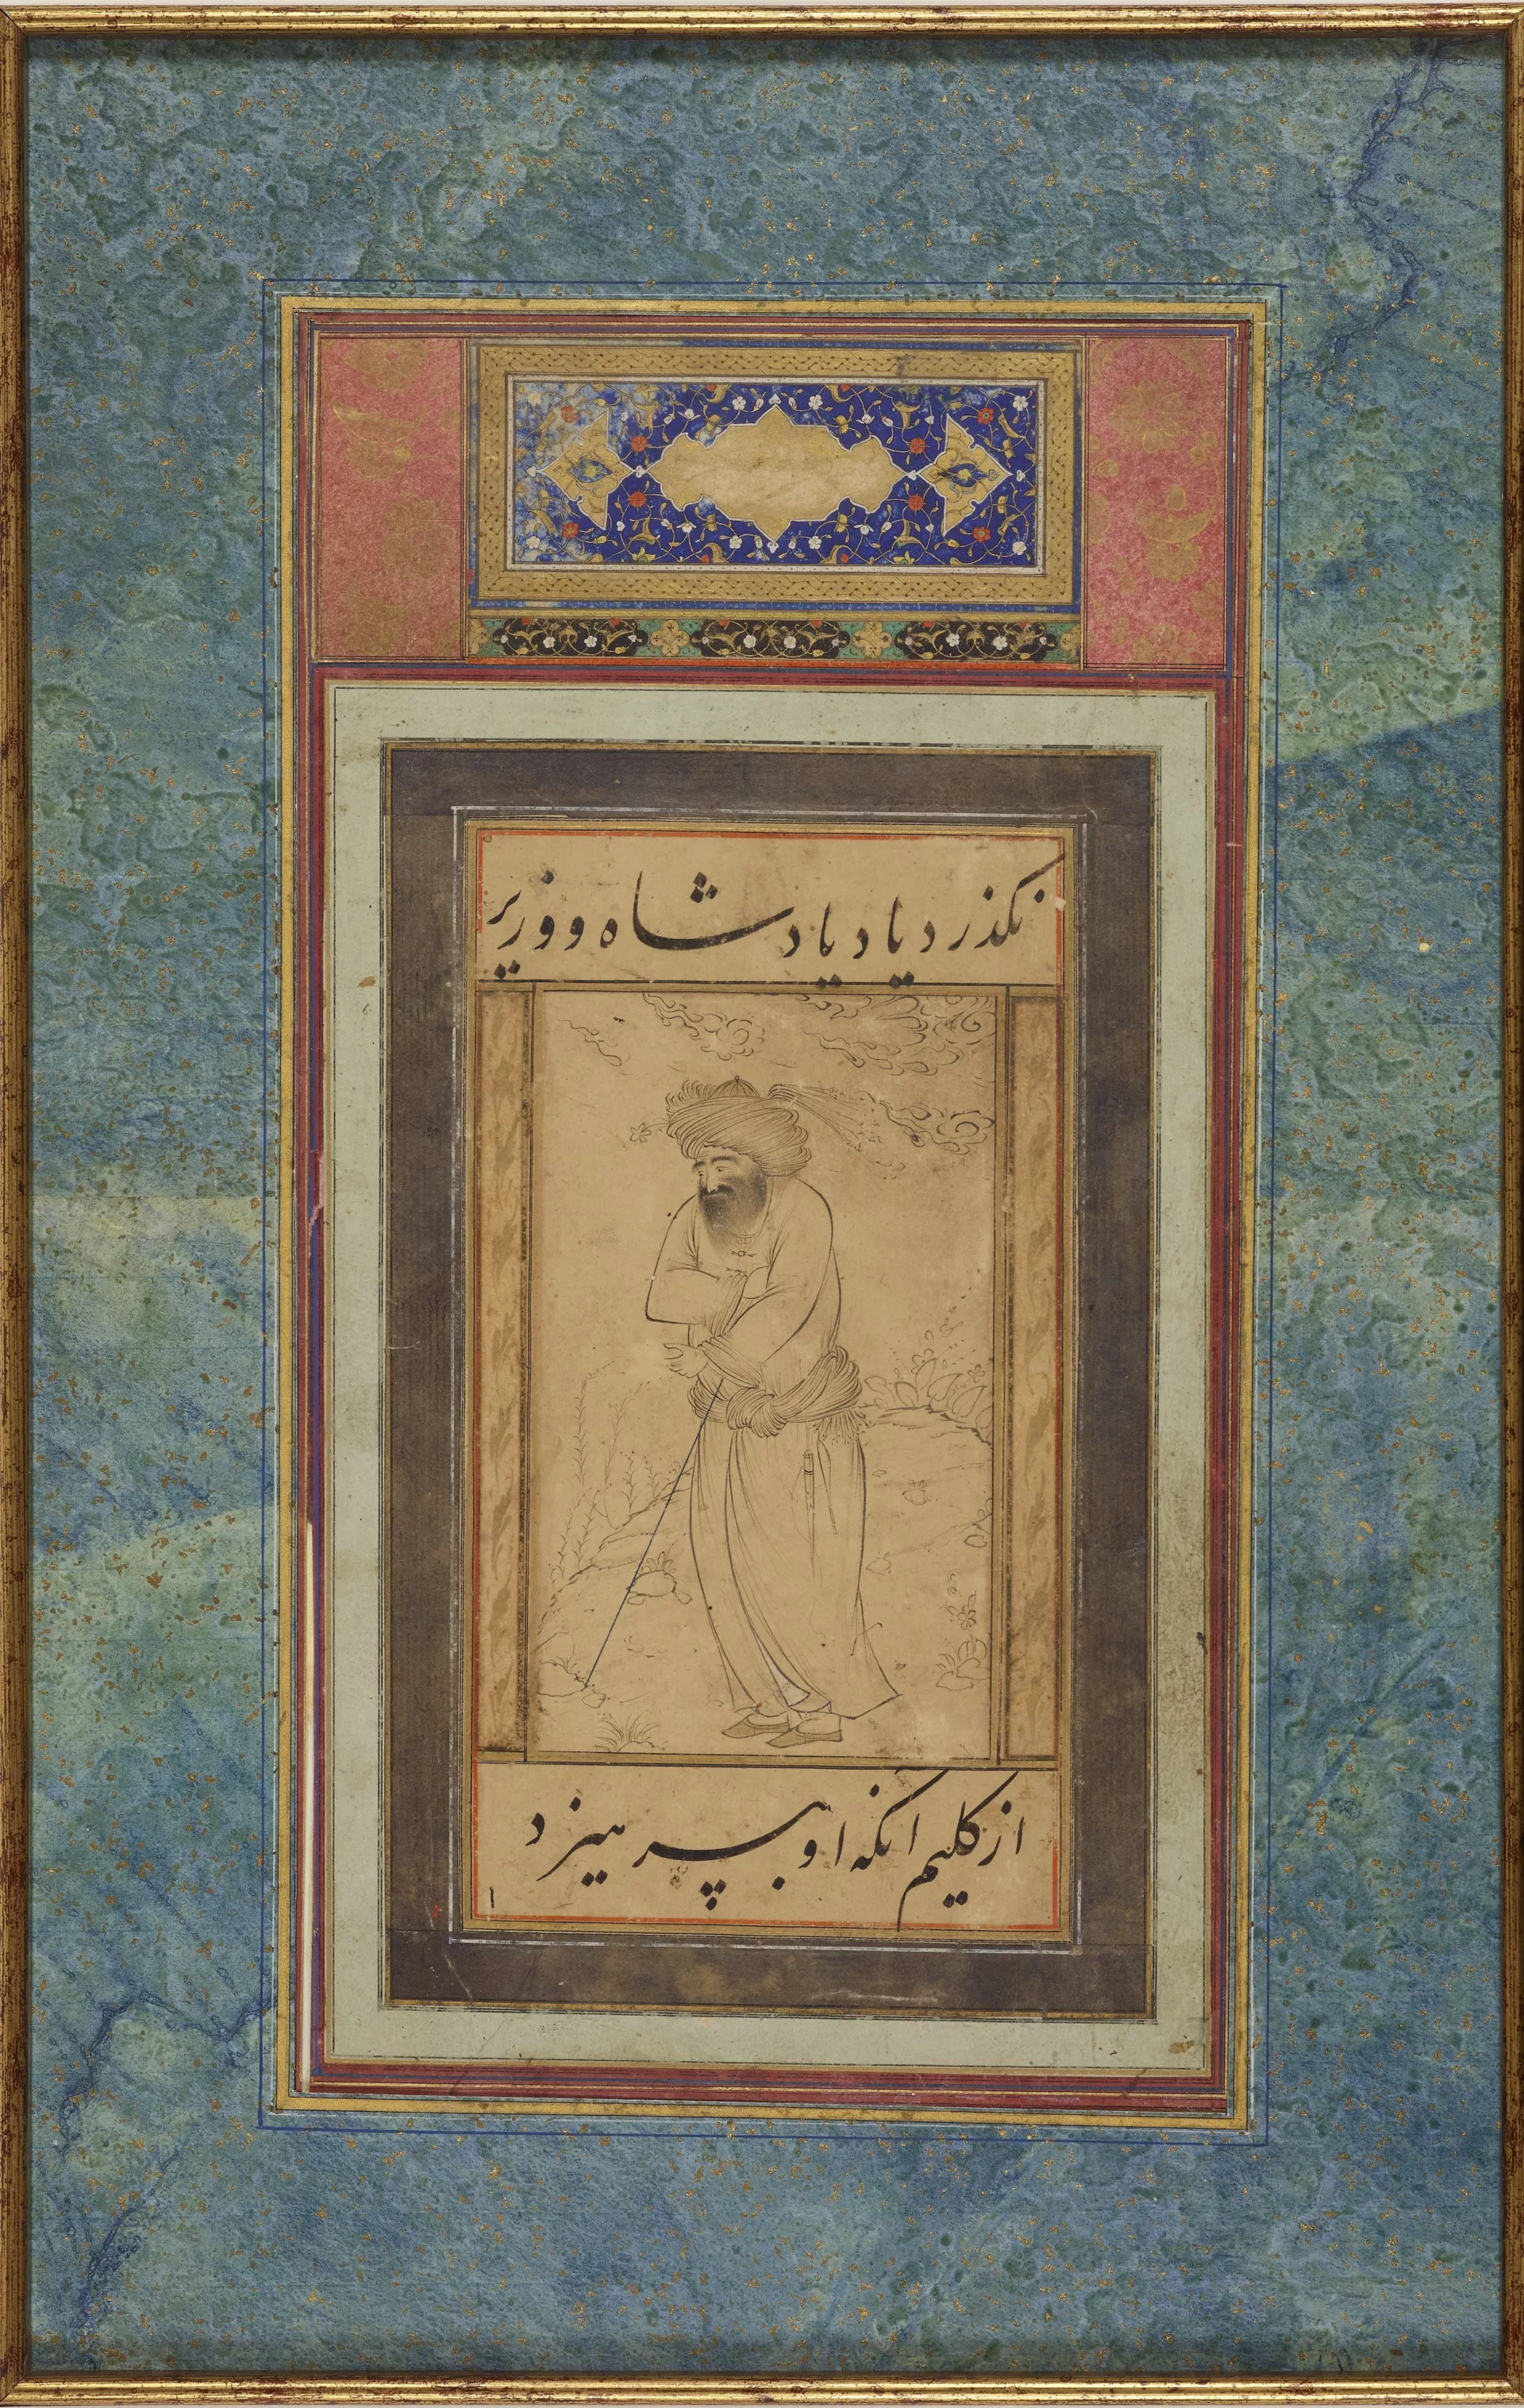 نکذرد یاد پادشاه و وزیر
از کلیم انکه او بپرهیزد